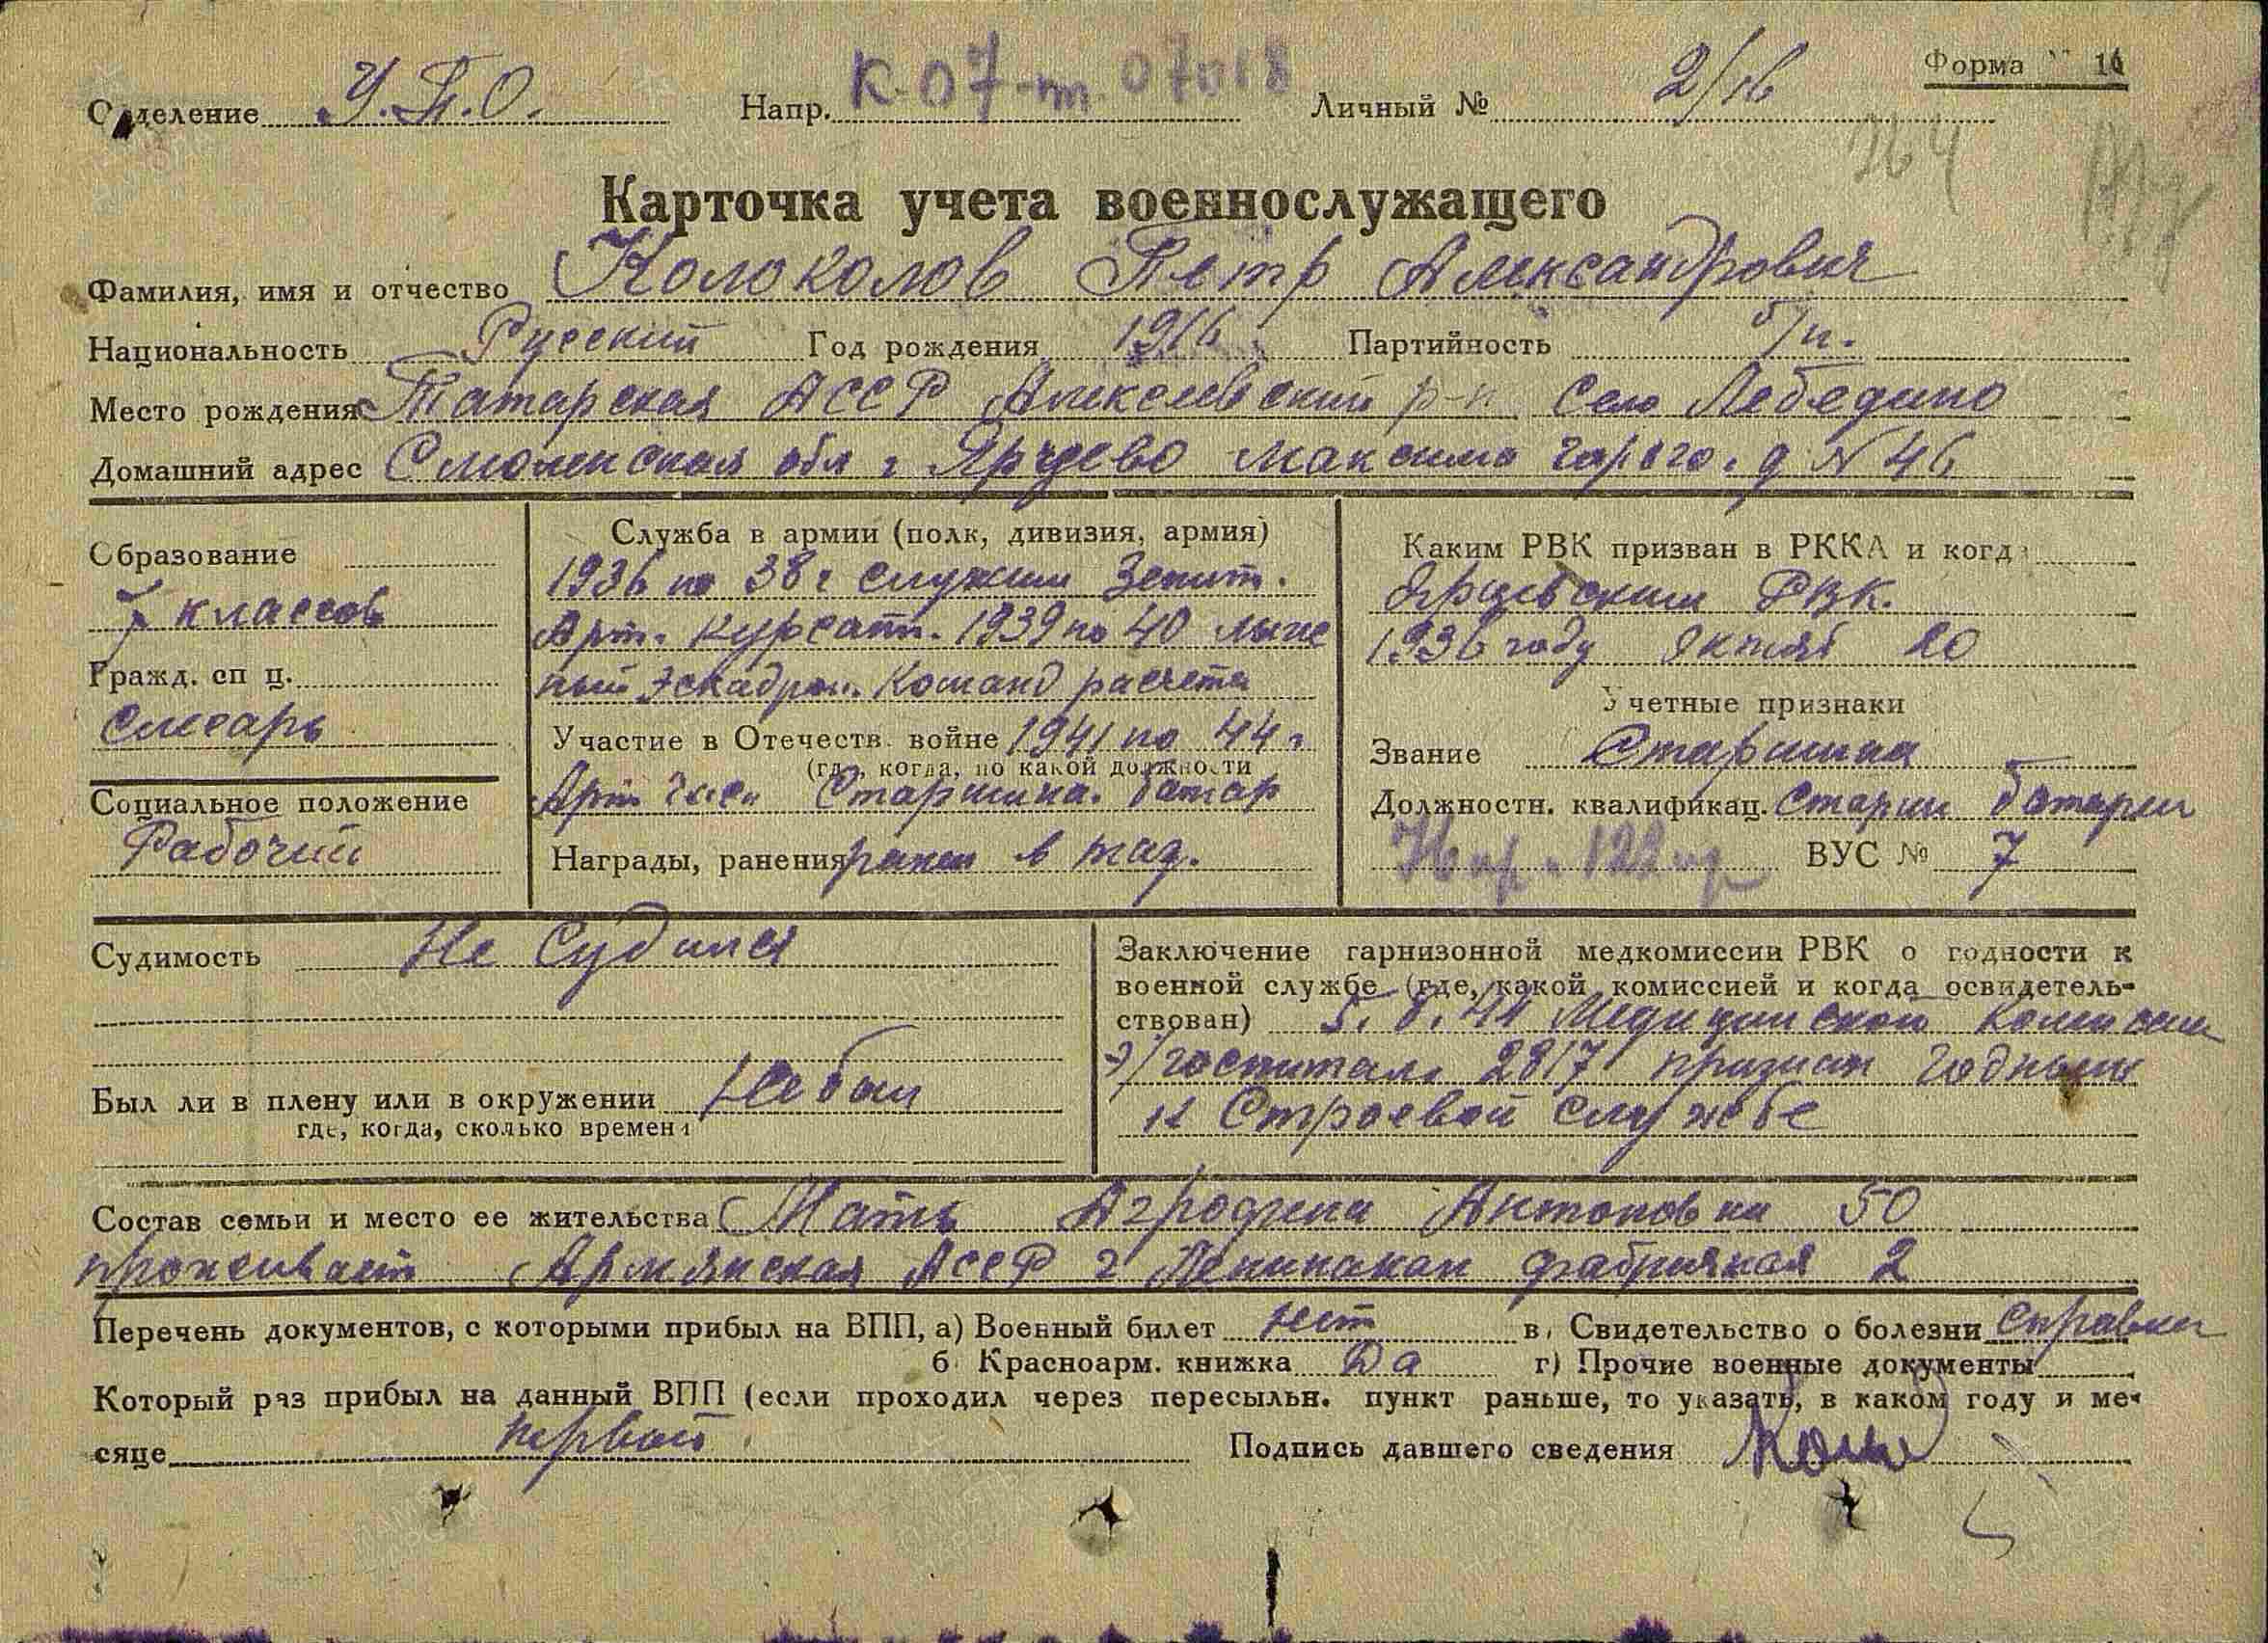 Форма 16
Отделение У.П.О. Напр. К-07-т. 07018 Личный № 2/16
264
Карточка учета военнослужащего
Фамилия, имя и отчество Колоколов Петр Александрович
Национальность Русский Год рождения 1916 Партийность б/п.
Место рождения Татарская АССР Алексеевский р-н Село Лебедино
Домашний адрес Смоленская обл г Ярцево Максима д N 46
Образование
7 классов
Гражд. сп ц.
слесарь
Социальное положение
Рабочий
Служба в армии (полк, дивизия, армия)
1936 по 38 г служил Зенит.
Арт. курсант. 1939 по 40 лыж
ный эскадрон. Команд расчета
Участие в Отечеств. войне 1941 по 44 г
(где, когда, по какой должности
Арт Старшина. батар
Награды, ранения ранен в
Каким РВК призван в РККА и когд
Ярцевским РВК.
1936 году Октяб 20
Учетные признаки
Звание Старшина
Должностн. квалификац. Старши батареи
122 ВУС № 7
Судимость Не Судился
Был ли в плену или в окружении Не был
где, когда, сколько времени
Заключение гарнизонной медкомиссии РВК о годности к
военной службе (где, какой комиссией и когда освидетель-
ствован) 5.8.44 Медицинской Комисси
э/госпиталь 2817 признан годным
к Строевой службе
Состав семьи и место ее жительства Мать Антоновна 50
проживает Армянская АССР г Ленинакан фабричная 2
Перечень документов, с которыми прибыл на ВПП, а) Военный билет нет в) Свидетельство о болезни справка
б Красноарм. книжка Да г) Прочие военные документы
Который раз прибыл на данный ВПП (если проходил через пересыльн. пункт раньше, то указать, в каком году и ме-
сяце первый Подпись давшего сведения